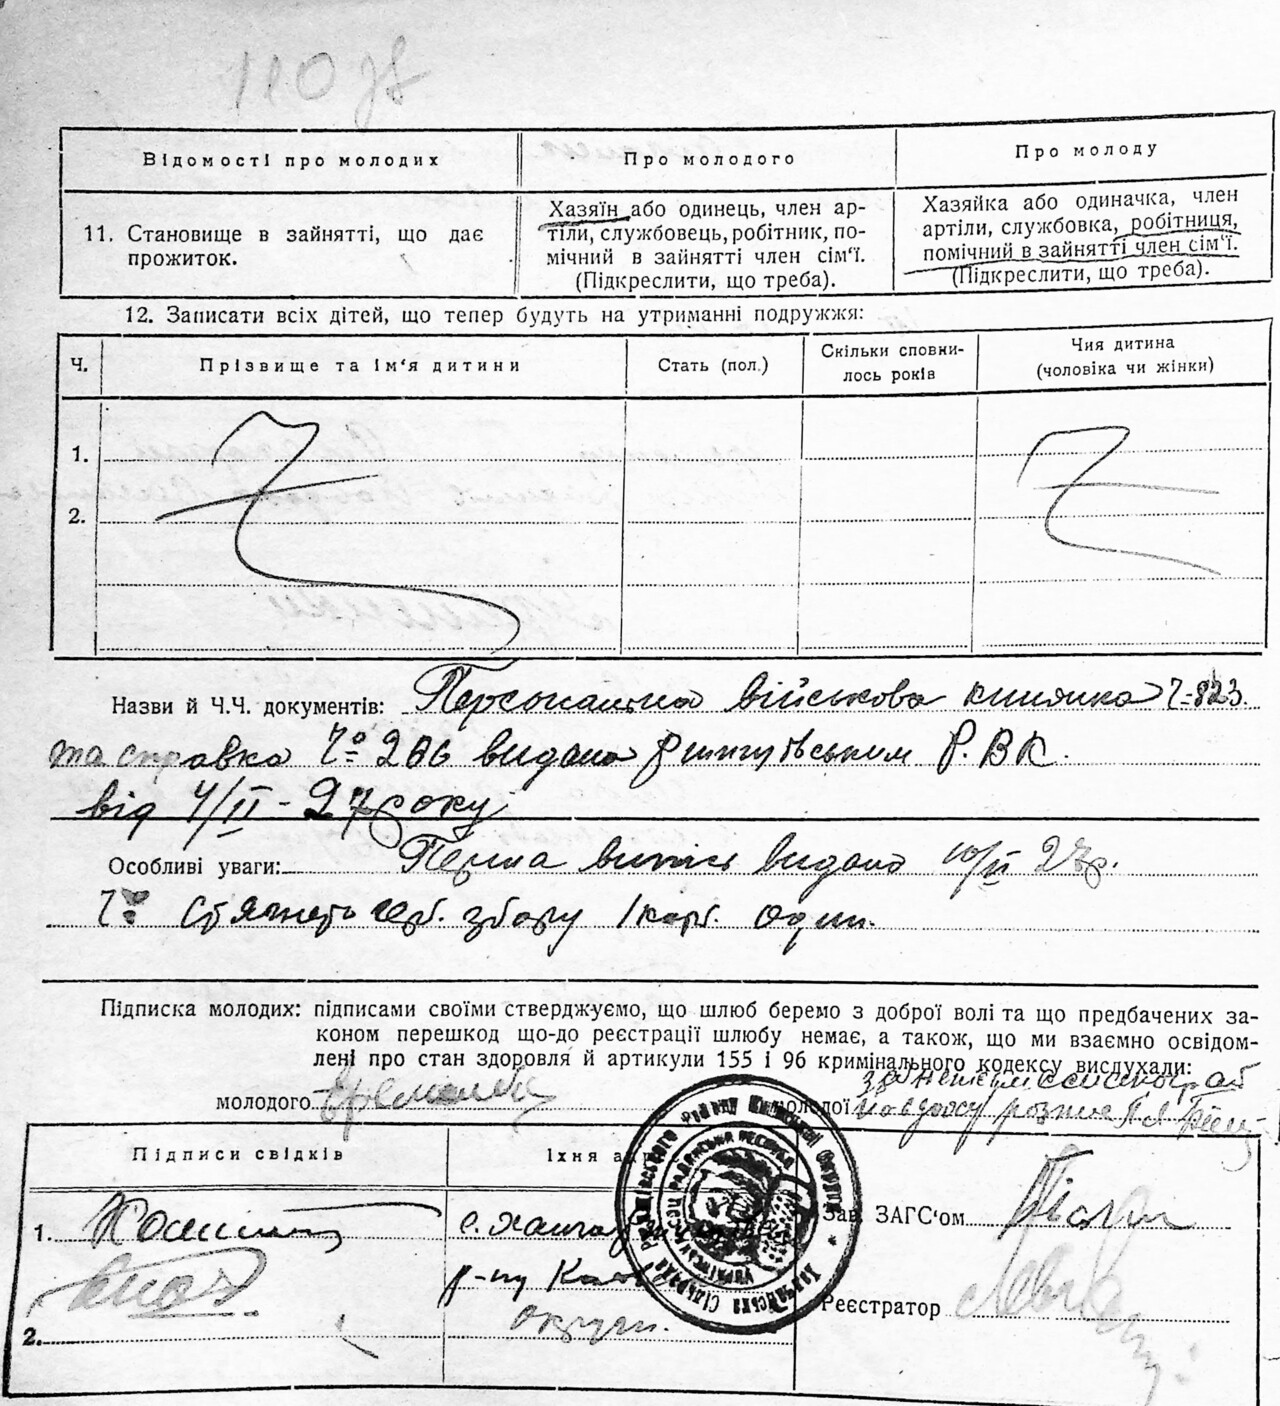 110 зв
Відомості про молодих
Про молодого
Про молоду
11. Становище в зайнятті, що дає
прожиток.
Хазяїн або одинець, член ар-
тіли, службовець, робітник, по-
мічний в зайнятті член сім‘ї.
(Підкреслити, що треба).
Хазяйка або одиначка, член
артіли, службовка, робітниця,
помічний в зайнятті член сім‘ї.
(Підкреслити, що треба).
12. Записати всіх дітей, що тепер будуть на утриманні подружжя:
Ч.
Прізвище та ім‘я дитини
Стать (пол.)
Скільки сповни-
лось років
Чия дитина
(чоловіка чи жінки)
1.
2.
Назви й Ч.Ч. документів: Персональна військова книжка Ч-823
та справка Ч° 266 видано Р.В.К.
від 4/II-27 року
Особливі уваги: Перша випись видано 10/II 27р.
герб. збору 1 карб. один.
Підписка молодих: підписами своїми стверджуємо, що шлюб беремо з доброї волі та що предбачених за-
коном перешкод що-до реєстрації шлюбу немає, а також, що ми взаємно освідом-
лені про стан здоровля й артикули 155 і 96 кримінального кодексу вислухали:
молодого
молодої
Підписи свідків
Їхня
1.
с.
р-ну
округи.
2.
Зав. ЗАГС‘ом
Реєстратор